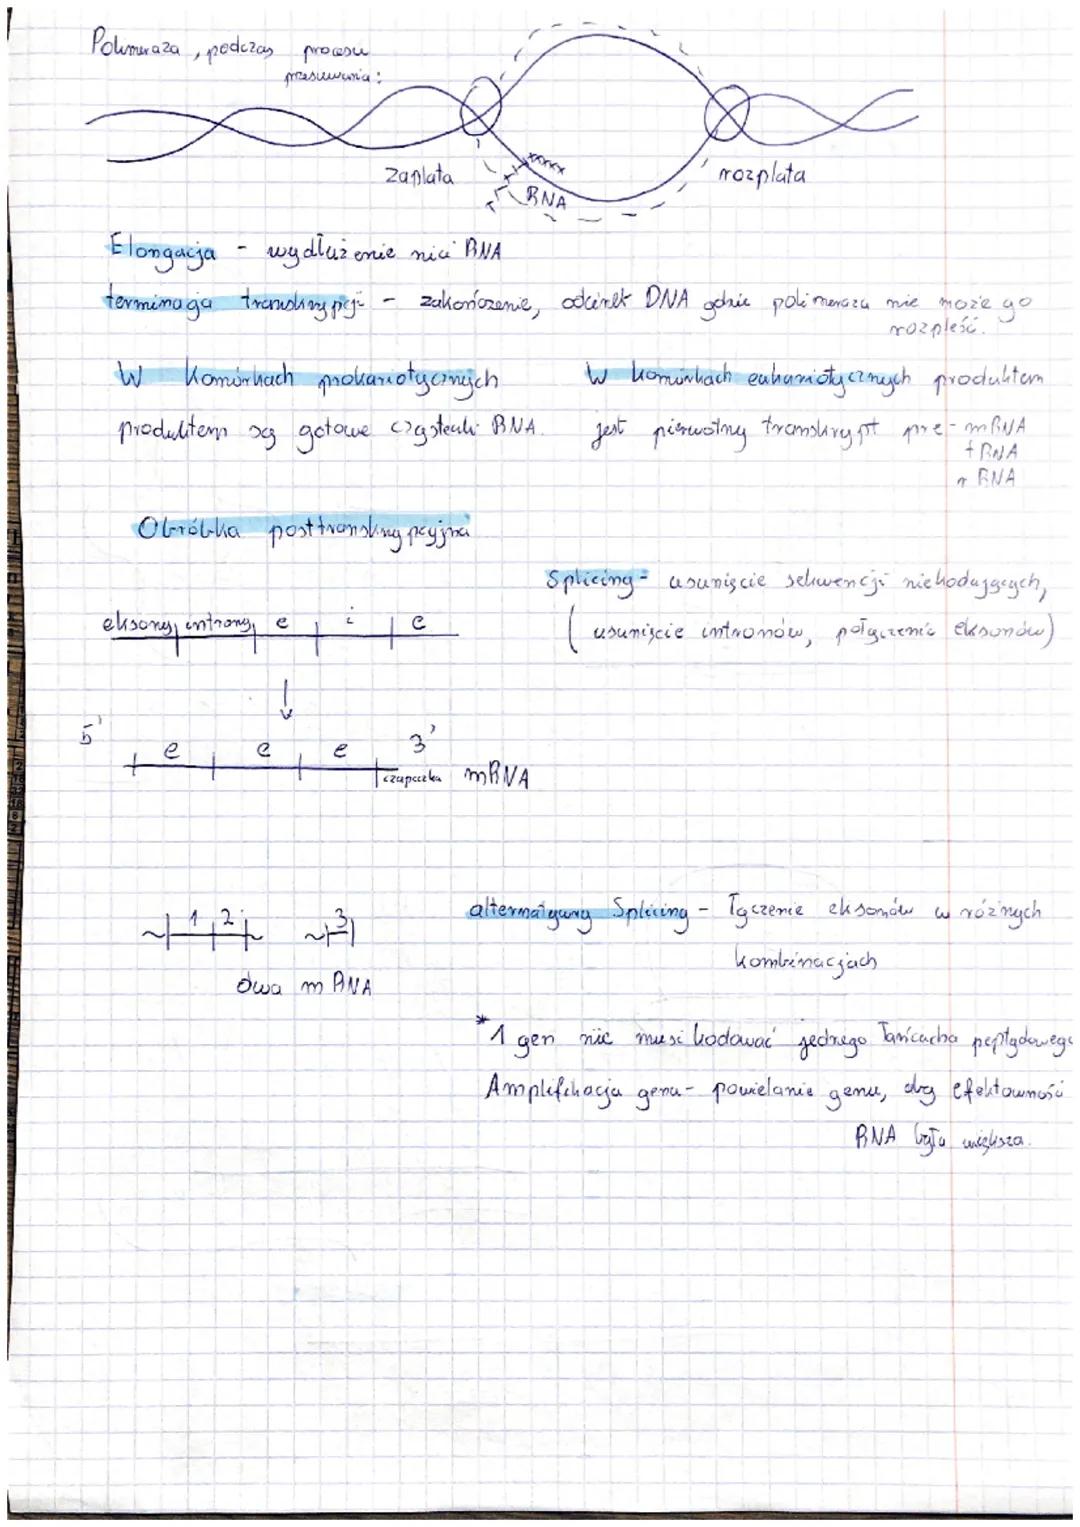 Polimeraza, podczas procesu
przesuwania:
zaplata
rozplata
RNA
Elongacja - wydłużenie nici RNA
terminacja transkrypcji - zakończenie, odcinek DNA gdzie polimeraza nie może go
rozpleść.
W komórkach prokariotycznych
produktem są gotowe cząsteczki RNA.
W komórkach eukariotycznych produktem
jest pierwotny transkrypt pre-mRNA
tRNA
rRNA
Obróbka posttranskrypcyjna
Splicing - usunięcie sekwencji niekodujących,
(usunięcie intronów, połączenie eksonów)
eksony introny e i e
5'
e e e 3'
czapeczka mRNA
1 2 3
dwa mRNA
alternatywny Splicing - łączenie eksonów w różnych
kombinacjach
*1 gen nie musi kodować jednego łańcucha peptydowego
Amplifikacja genu - powielanie genu, aby efektowność
RNA była większa.